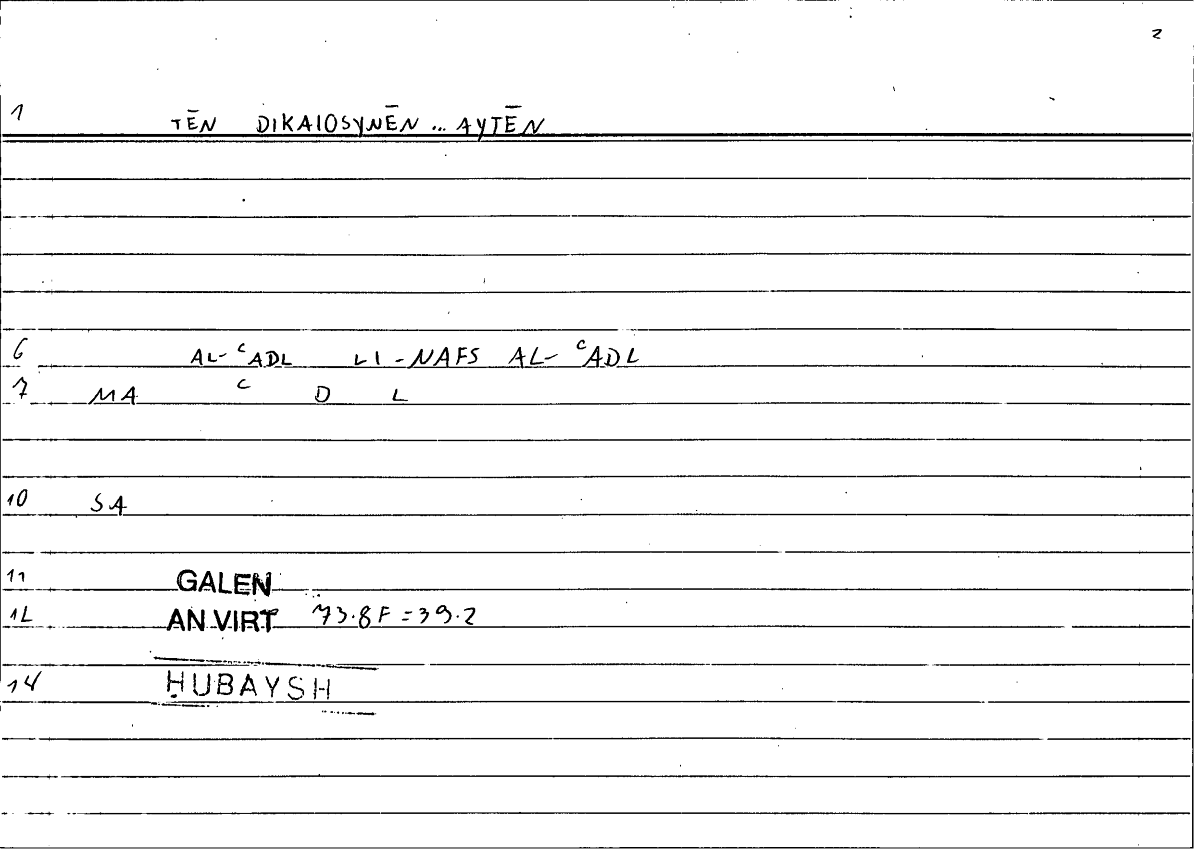 2
1 TĒN DIKAIOSYNĒN ... AYTĒN
6 AL-ᶜADL LI-NAFS AL-ᶜADL
7 MA ᶜ D L
10 SA
11 GALEN
12 AN VIRT 73.8F=39.2
14 ḤUBAYSH